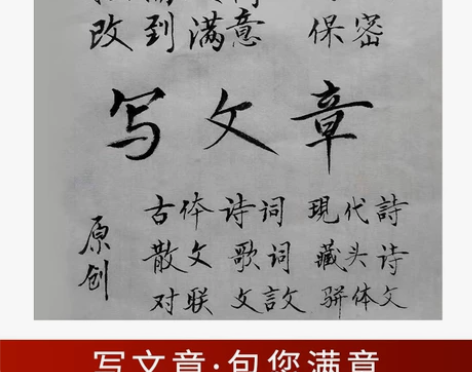 改到满意 保密
写文章
原创
古体诗词 現代詩
散文 歌词 藏头诗
对联 文言文 骈体文
写文章·包您满意